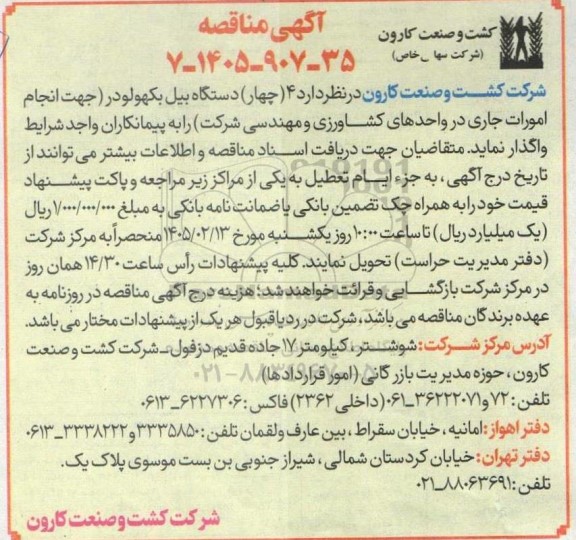 کشت و صنعت کارون
(شرکت سها ـ خاص)
آگهی مناقصه
۷ـ۱۴۰۵ـ۹۰۷ـ۳۵
شرکت کشت و صنعت کارون در نظر دارد ۴ (چهار) دستگاه بیل بکهولودر (جهت انجام
امورات جاری در واحدهای کشاورزی و مهندسی شرکت) را به پیمانکاران واجد شرایط
واگذار نماید. متقاضیان جهت دریافت اسناد مناقصه و اطلاعات بیشتر می توانند از
تاریخ درج آگهی ، به جزء ایام تعطیل به یکی از مراکز زیر مراجعه و پاکت پیشنهاد
قیمت خود را به همراه چک تضمین بانکی یا ضمانت نامه بانکی به مبلغ ۱/۰۰۰/۰۰۰/۰۰۰ ریال
(یک میلیارد ریال) تا ساعت ۱۰:۰۰ روز یکشنبه مورخ ۱۴۰۵/۰۲/۱۳ منحصراً به مرکز شرکت
(دفتر مدیریت حراست) تحویل نمایند. کلیه پیشنهادات رأس ساعت ۱۴/۳۰ همان روز
در مرکز شرکت بازگشایی و قرائت خواهند شد؛ هزینه درج آگهی مناقصه در روزنامه به
عهده برندگان مناقصه می باشد، شرکت در رد یا قبول هر یک از پیشنهادات مختار می باشد.
آدرس مرکز شرکت: شوشتر، کیلومتر ۱۷ جاده قدیم دزفول ـ شرکت کشت و صنعت
کارون ، حوزه مدیریت بازرگانی (امور قراردادها)
تلفن : ۷۲ و ۳۶۲۲۲۰۷۱ـ۰۶۱ (داخلی ۲۳۶۲) فاکس : ۶۲۲۷۳۰۶ـ۰۶۱۳
دفتر اهواز: امانیه ، خیابان سقراط ، بین عارف و لقمان تلفن : ۳۳۳۵۸۵۰ و ۳۳۳۸۲۲۲ـ۰۶۱۳
دفتر تهران: خیابان کردستان شمالی ، شیراز جنوبی بن بست موسوی پلاک یک.
تلفن : ۸۸۰۶۳۶۹۱ـ۰۲۱
شرکت کشت و صنعت کارون